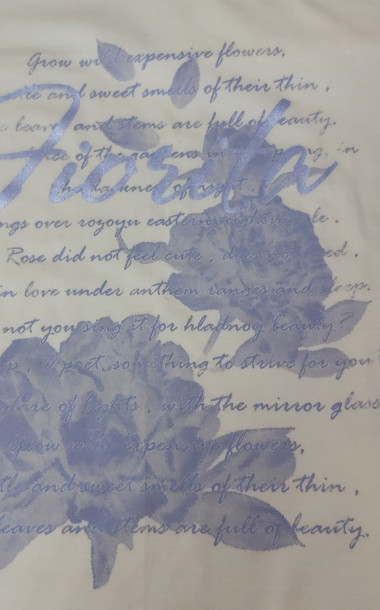 Grow wild expensive flowers,
and sweet smells of their thin ,
leaves and stems are full of beauty.
of the gardens in in
Fiorita
darkness of night .
ngs over rozoyu eastern
Rose did not feel cute ,
in love under anthem ranges and sleep.
not you sing it for hladnoy beauty?
something to strive for you
of lights , with the mirror glass
Grow wild expensive flowers,
and sweet smells of their thin ,
leaves and stems are full of beauty.